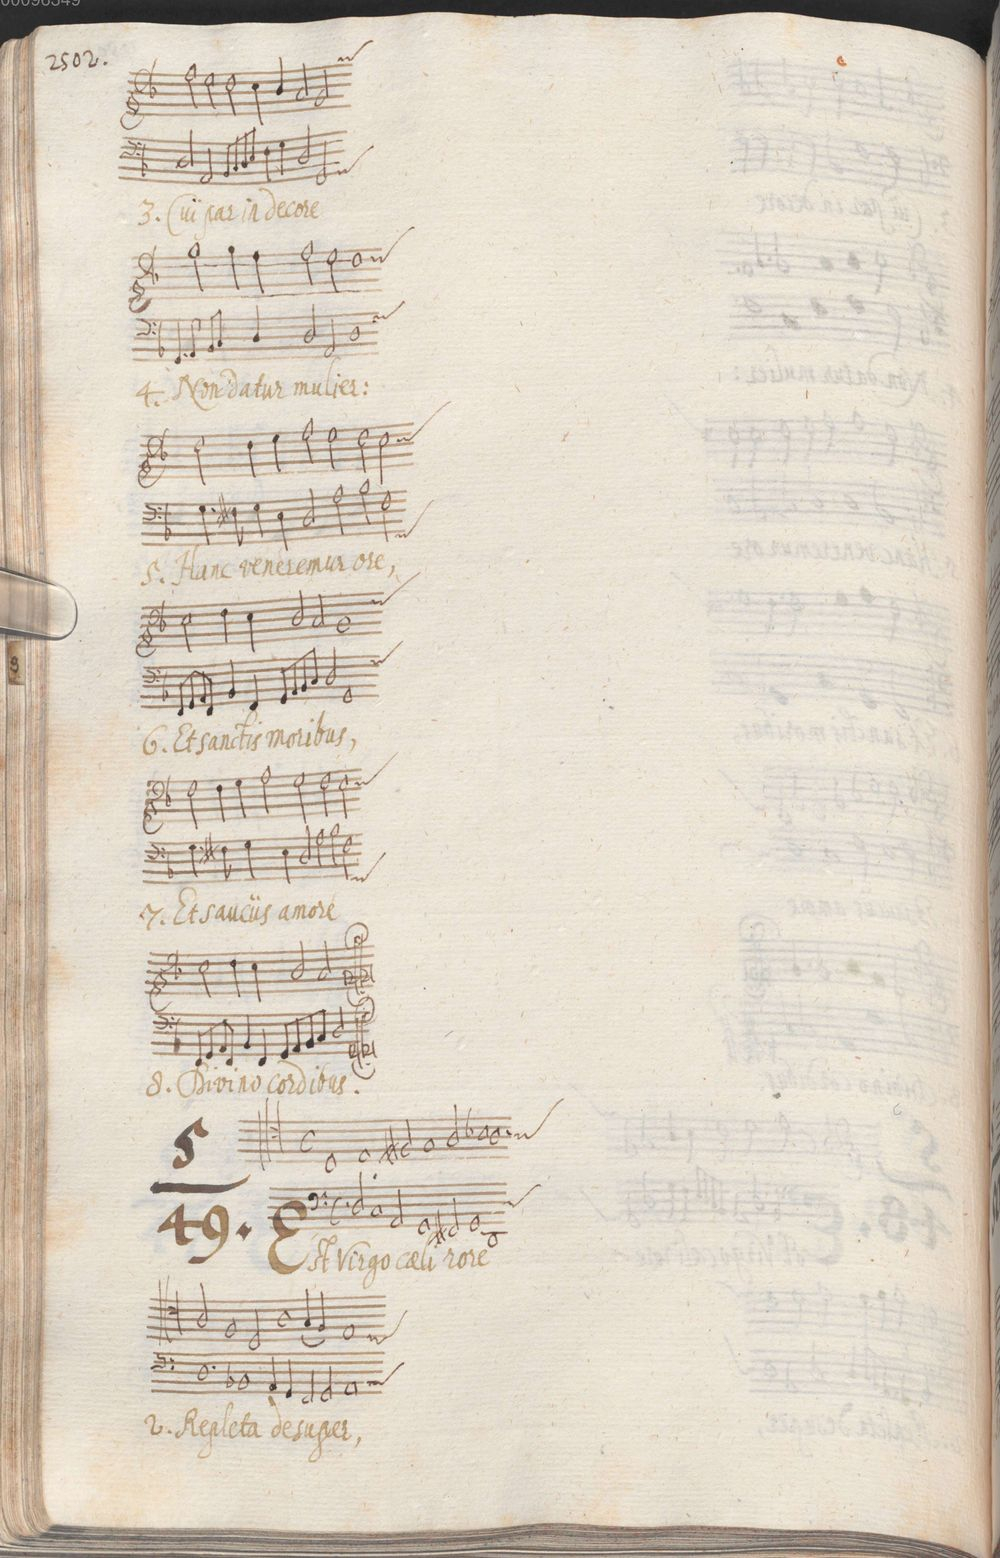 00096349
2502.
3. Cui par in decore
4. Non datur mulier:
5. Hanc veneremur ore,
6. Et sanctis moribus,
7. Et sauciis amore
8. Divino cordibus.
5
49. Est Virgo cæli rore
2. Repleta desuper,